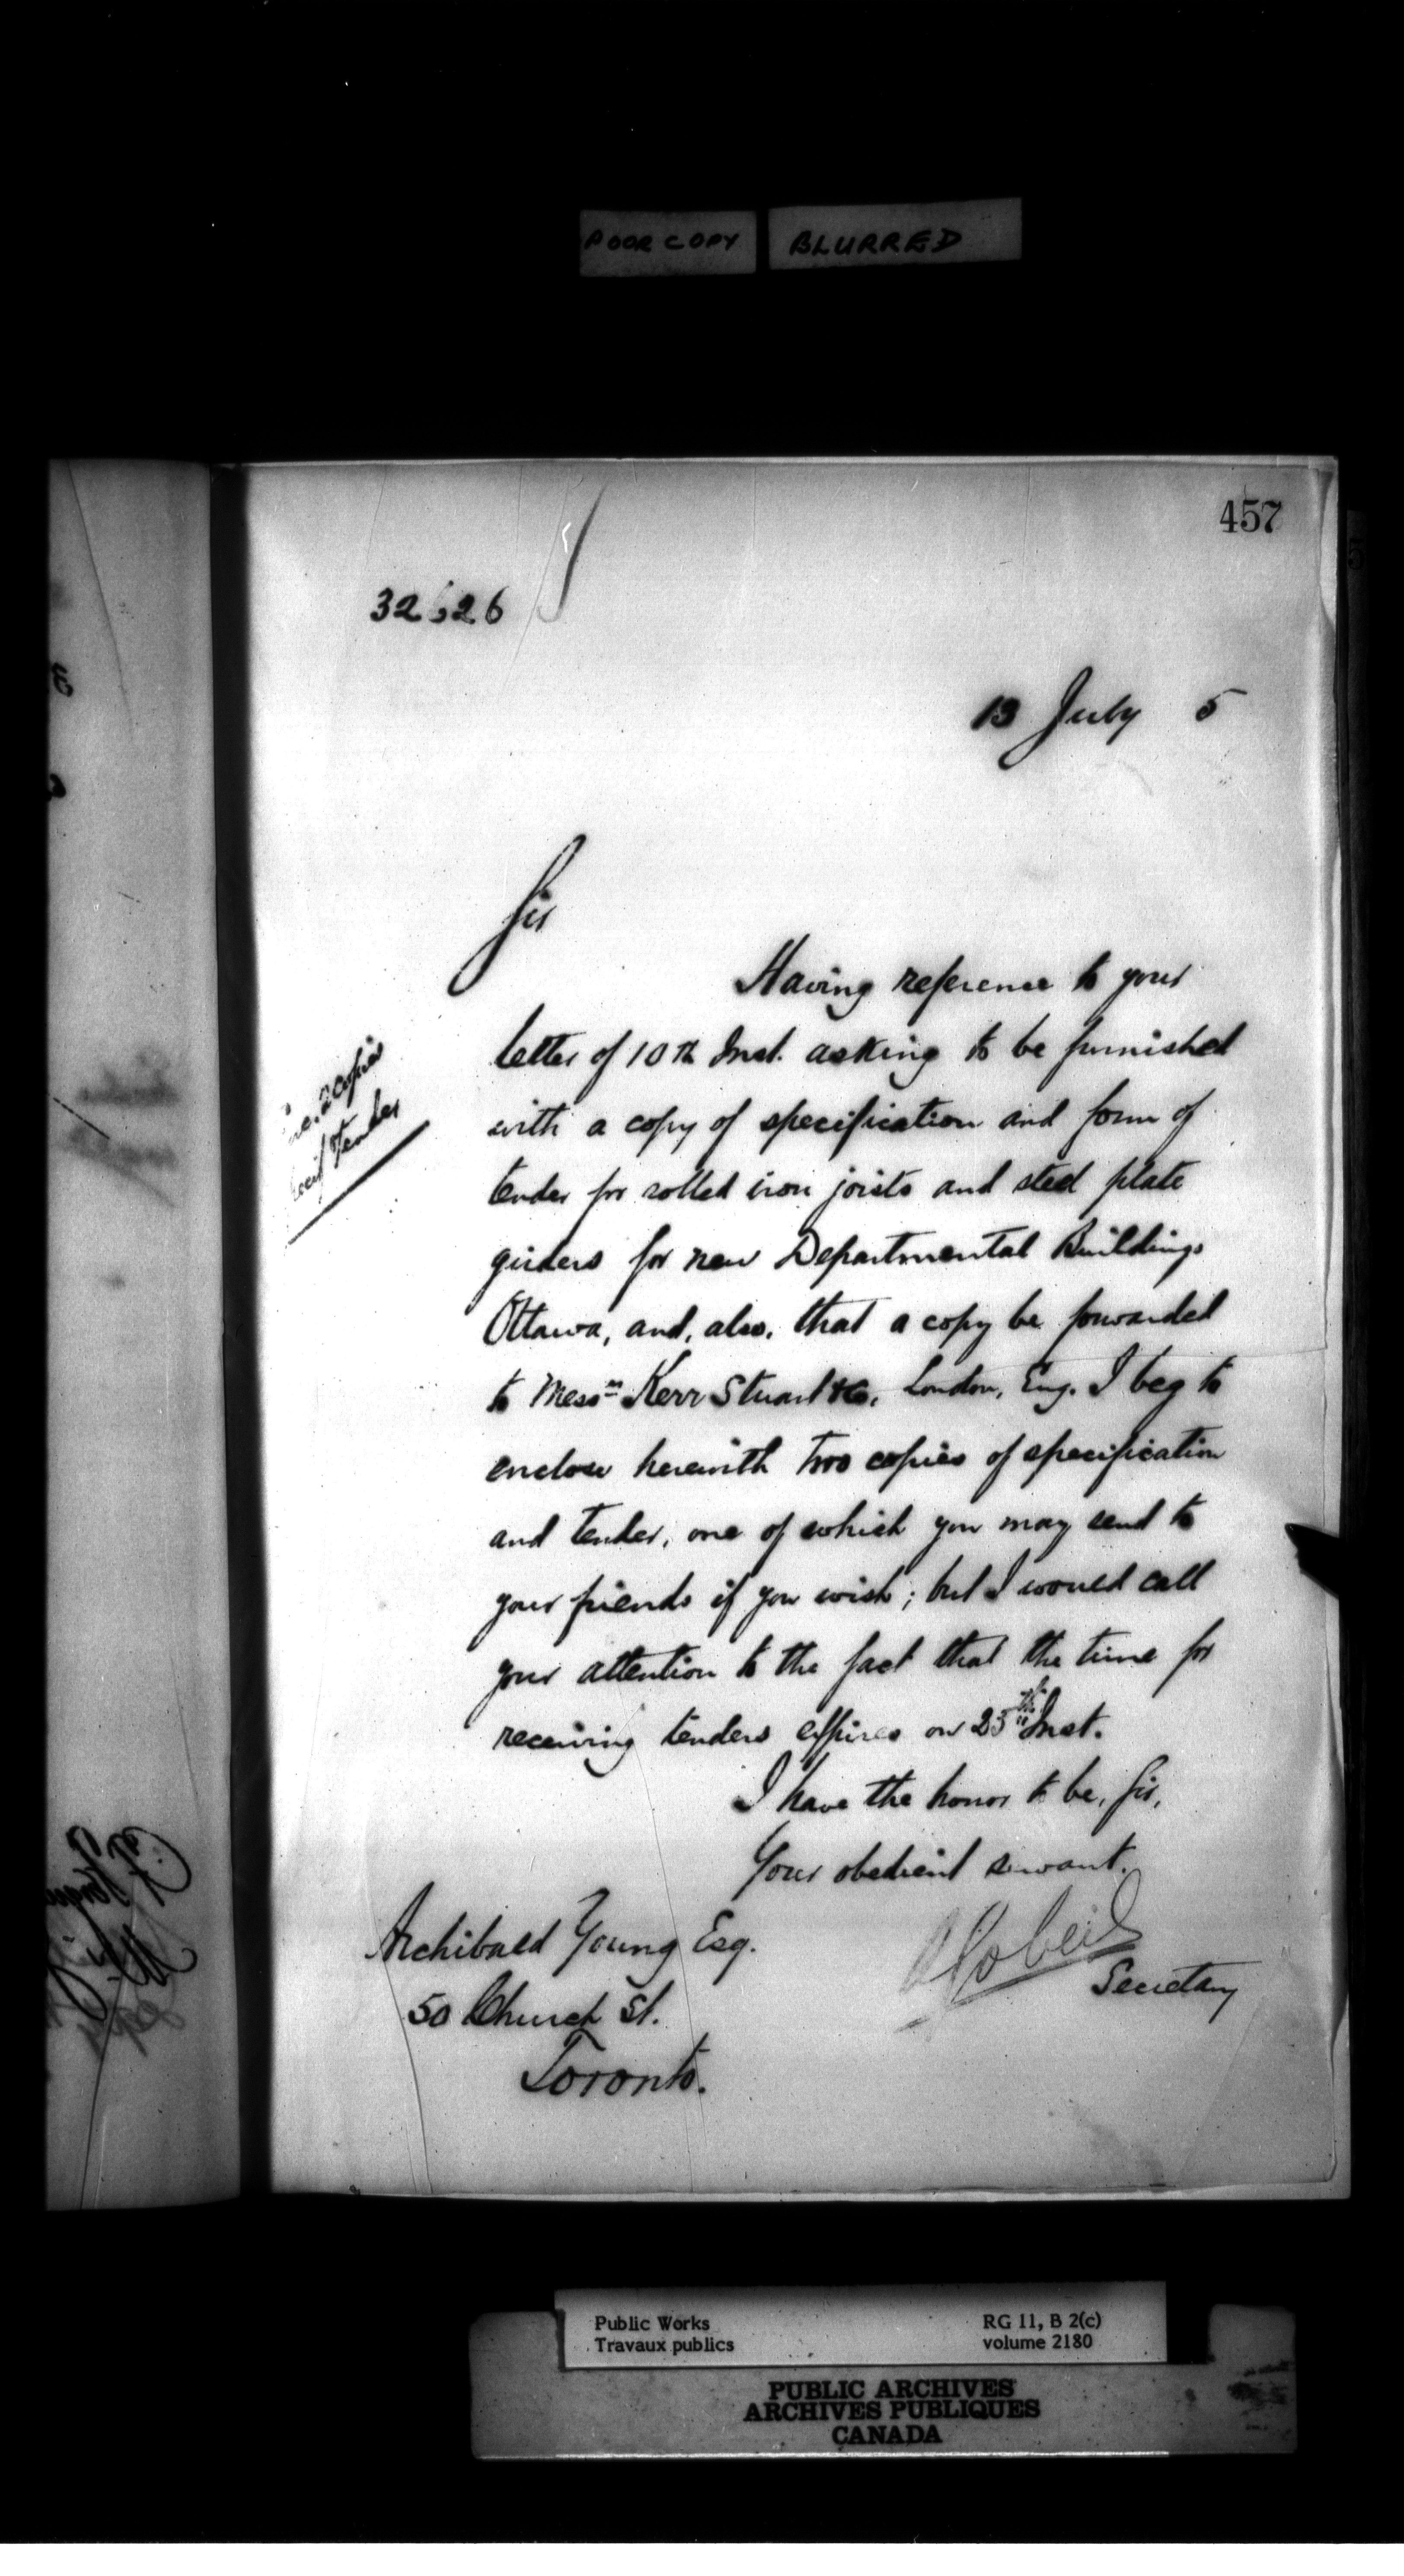 POOR COPY BLURRED
457
32626
13 July 5
Sir
Having reference to your
letter of 10th Inst. asking to be furnished
with a copy of specification and form of
tender for rolled iron joists and steel plate
girders for new Departmental Buildings
Ottawa, and, also, that a copy be forwarded
to Messrs Kerr Stuart & Co, London, Eng. I beg to
enclose herewith two copies of specification
and tender, one of which you may send to
your friends if you wish; but I would call
your attention to the fact that the time for
receiving tenders expires on 25th Inst.
I have the honor to be, Sir,
Your obedient servant.
2 copies
tender
A Gobeil
Secretary
Archibald Young Esq.
50 Church St.
Toronto.
Public Works
Travaux publics
RG 11, B 2(c)
volume 2180
PUBLIC ARCHIVES
ARCHIVES PUBLIQUES
CANADA